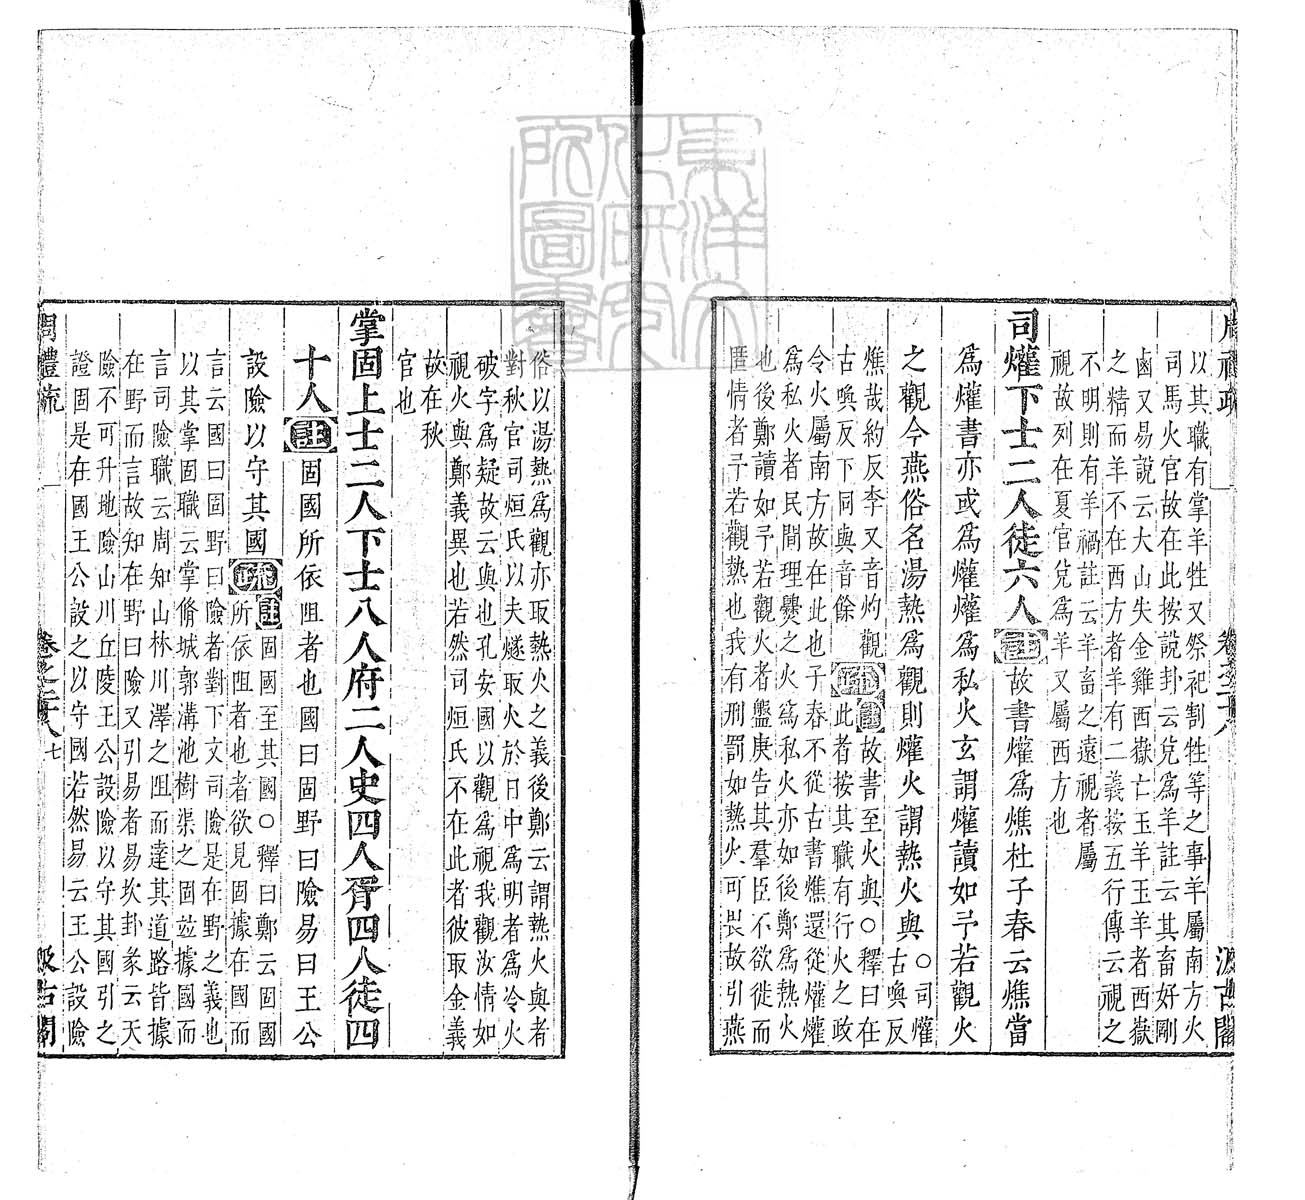 周禮疏
卷之二十八
汲古閣
以其職有掌羊牲又祭祀割牲等之事羊屬南方火
司馬火官故在此按說卦云兌為羊註云其畜好剛
鹵又易說云大山失金雞西嶽亡玉羊玉羊者西嶽
之精而羊不在西方者羊有二義按五行傳云視之
不明則有羊禍註云羊畜之遠視者屬
視故列在夏官兌為羊又屬西方也
司爟下士二人徒六人註故書爟為燋杜子春云燋當
為爟書亦或為爟爟為私火玄謂爟讀如予若觀火
之觀今燕俗名湯熱為觀則爟火謂熱火與○司爟古喚反
燋哉約反李又音灼觀
古喚反下同與音餘
疏註故書至火與○釋曰在此者按其職有行火之政
令火屬南方故在此也子春不從古書燋還從爟爟
為私火者民間理爨之火為私火亦如後鄭為熱火
也後鄭讀如予若觀火者盤庚告其羣臣不欲徙而
匿情者予若觀熱也我有刑罰如熱火可畏故引燕
俗以湯熱為觀亦取熱火之義後鄭云謂熱火與者
對秋官司烜氏以夫燧取火於日中為明者為冷火
破字為疑故云與也孔安國以觀為視我觀汝情如
視火與鄭義異也若然司烜氏不在此者彼取金義
故在秋
官也
掌固上士二人下士八人府二人史四人胥四人徒四
十人註固國所依阻者也國曰固野曰險易曰王公
設險以守其國疏註固國至其國○釋曰鄭云固國
所依阻者也者欲見固據在國而
言云國曰固野曰險者對下文司險是在野之義也
以其掌固職云掌脩城郭溝池樹渠之固並據國而
言司險職云周知山林川澤之阻而達其道路皆據
在野而言故知在野曰險又引易者易坎卦彖云天
險不可升地險山川丘陵王公設險以守其國引之
證固是在國王公設之以守國若然易云王公設險
周禮疏
卷之二十八
七
汲古閣